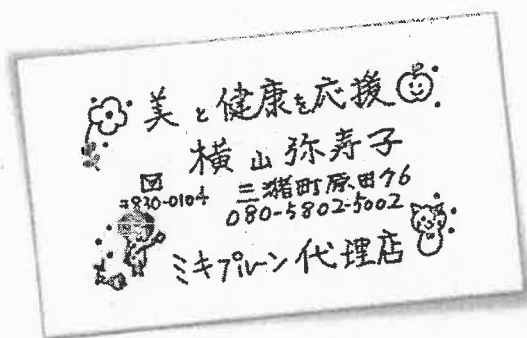 美と健康を応援
横山弥寿子
〒830-0104 三潴町原田76
080-5802-5002
ミキプルーン代理店